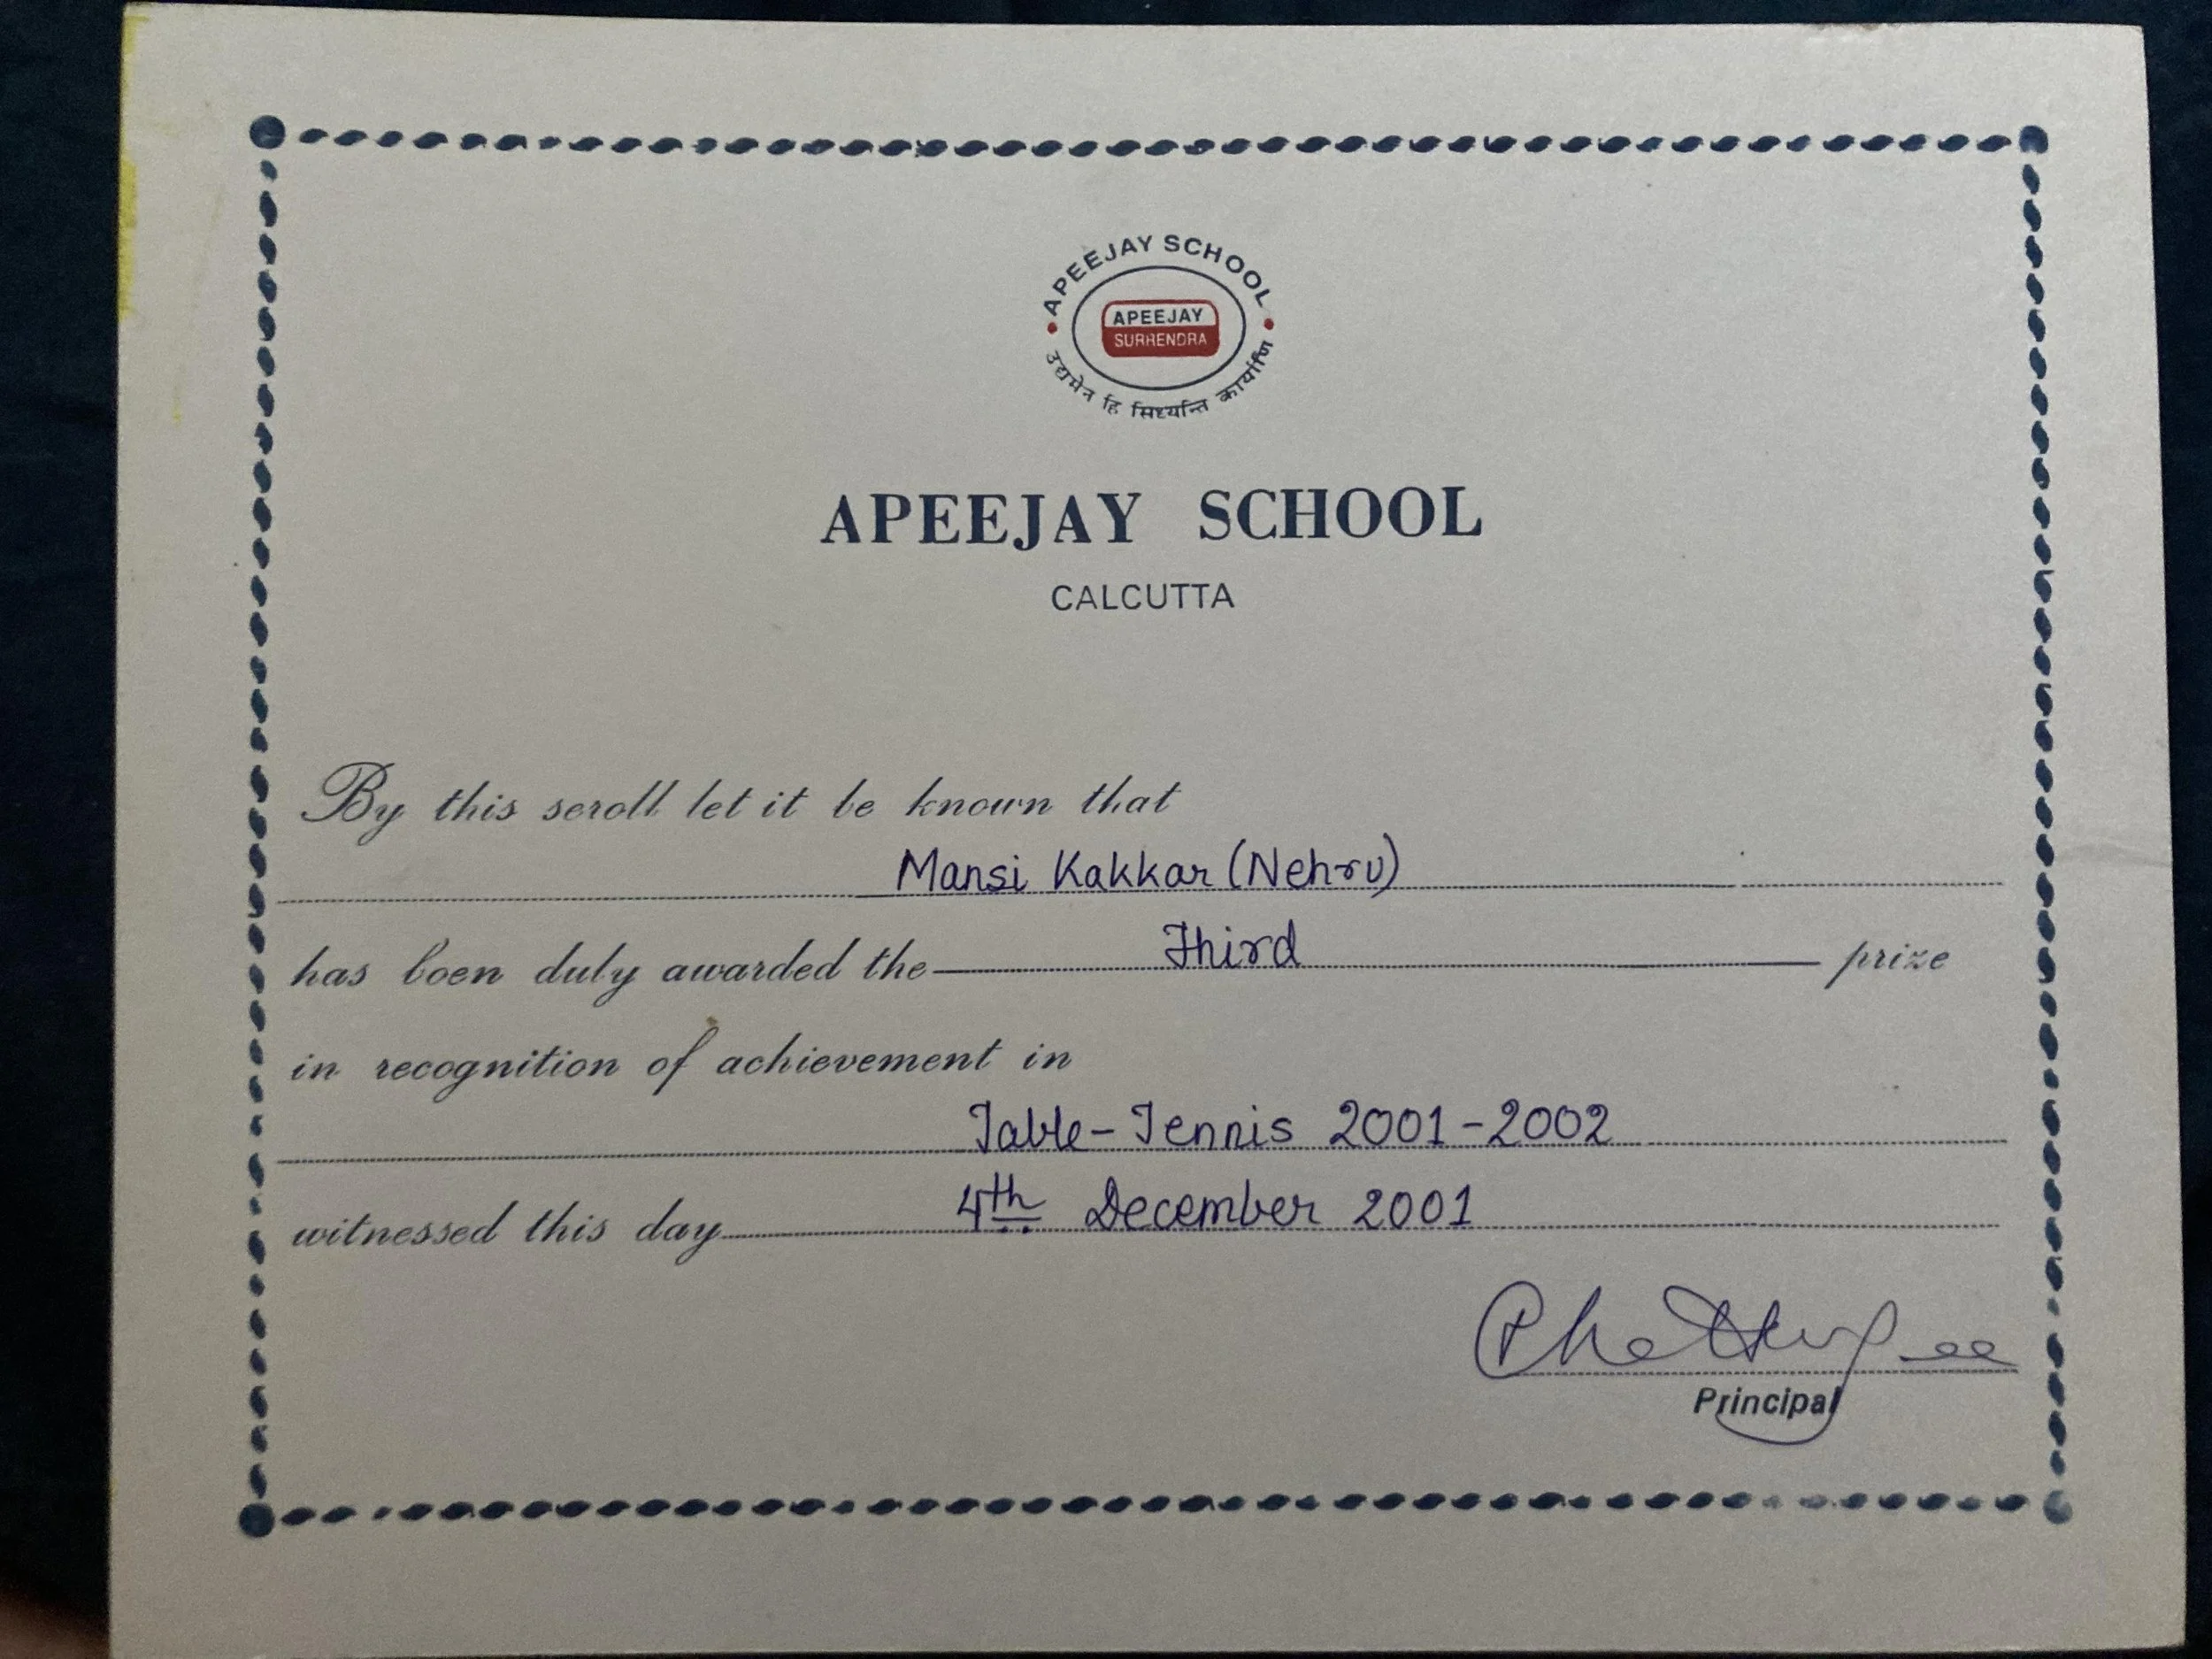 APEEJAY SCHOOL
APEEJAY
SURRENDRA
उद्यमेन हि सिध्यन्ति कार्याणि
APEEJAY SCHOOL
CALCUTTA
By this scroll let it be known that
Mansi Kakkar (Nehru)
has been duly awarded the Third prize
in recognition of achievement in
Table-Tennis 2001-2002
witnessed this day 4th December 2001
Principal